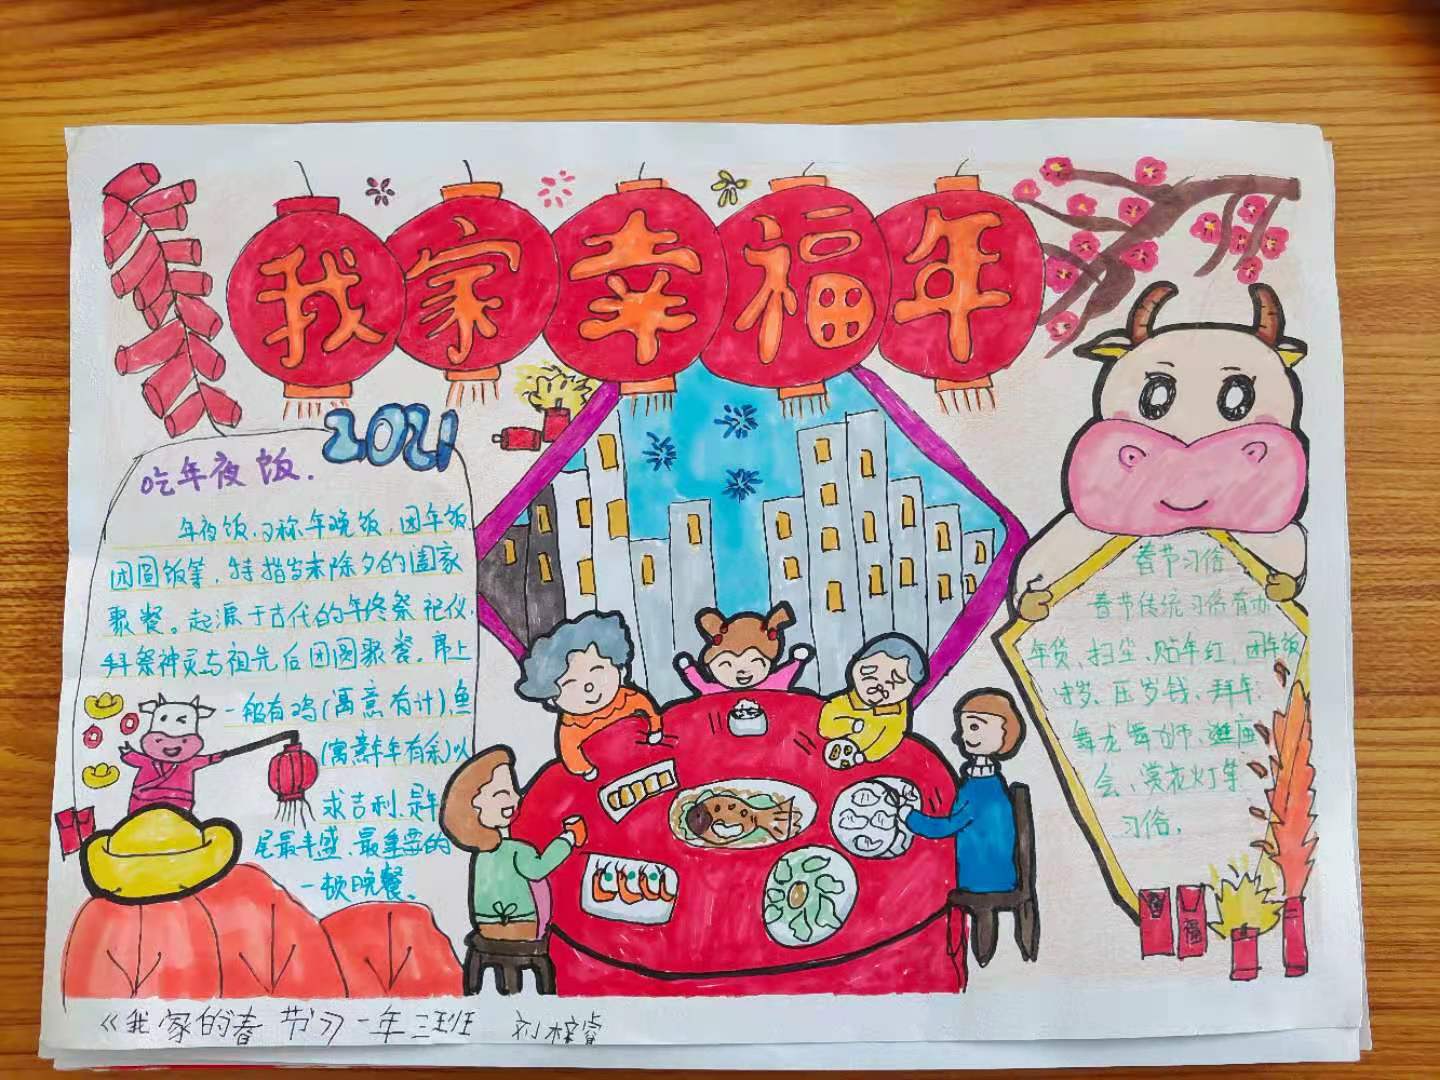 我家幸福年
2021
吃年夜饭.
年夜饭,又称年晚饭、团年饭,
团圆饭等,特指岁末除夕的阖家
聚餐。起源于古代的年终祭祀仪,
拜祭神灵与祖先后团圆聚餐。席上
一般有鸡(寓意有计),鱼
(寓意年年有余)以
求吉利.是年
尾最丰盛、最重要的
一顿晚餐。
春节习俗
春节传统习俗有办
年货、扫尘、贴年红、团年饭
守岁、压岁钱、拜年、
舞龙舞狮、逛庙
会、赏花灯等
习俗.
春
福
《我家的春节》一年三班 刘梓睿